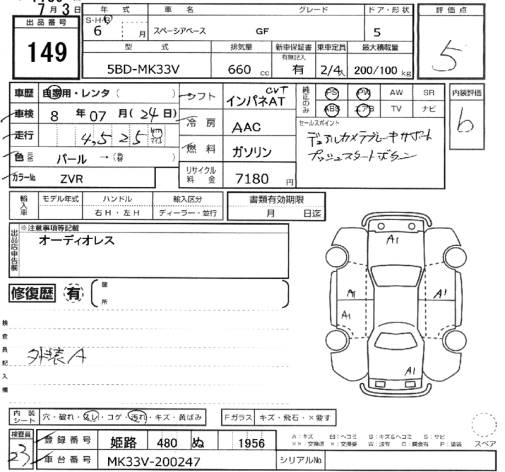 7月3日
出品番号
149
年式 車名 グレード ドア・形状
S・H・R 6 月 スペーシアベース GF 5
型式 排気量 新車保証書 乗車定員 最大積載量
有無記入
5BD-MK33V 660 cc 有 2/4人 200/100 kg
評価点
5
車歴 自家用・レンタ( )
車検 8年07月(24日)
走行 4,525
色 パール →( )
カラーNo ZVR
シフト CVT インパネAT
冷房 AAC
燃料 ガソリン
リサイクル料金 7180円
純正のみ PS PW AW SR
ABS エアB TV ナビ
セールスポイント
デュアルカメラブレーキサポート
プッシュスタートボタン
内装評価
b
輸入車 モデル年式 ハンドル 輸入区分
右H・左H ディーラー・並行
書類有効期限
月 日迄
出品店申告欄
※注意事項等記載
オーディオレス
修復歴 有
箇所
検査員記入欄
外装A
A1
A1
A1
A1
A1
内装シート 穴・破れ・なし・コゲ・汚れ・キズ・黄ばみ
Fガラス キズ・飛石・×要す
検査員
23
登録番号 姫路 480 ぬ 1956
車台番号 MK33V-200247
シリアルNo
スペア